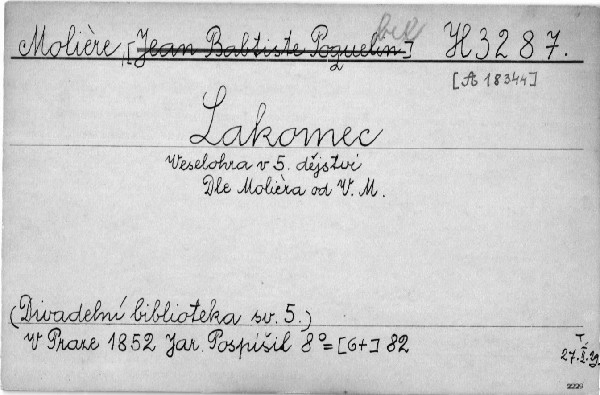 Molière, [Jean Babtiste Poquelin] H 3287.
[A 18344]
Lakomec
Weselohra v 5. dějství
Dle Molièra od V. M.
(Divadelní biblioteka sv. 5.)
V Praze 1852 Jar. Pospíšil 8° = [6+] 82